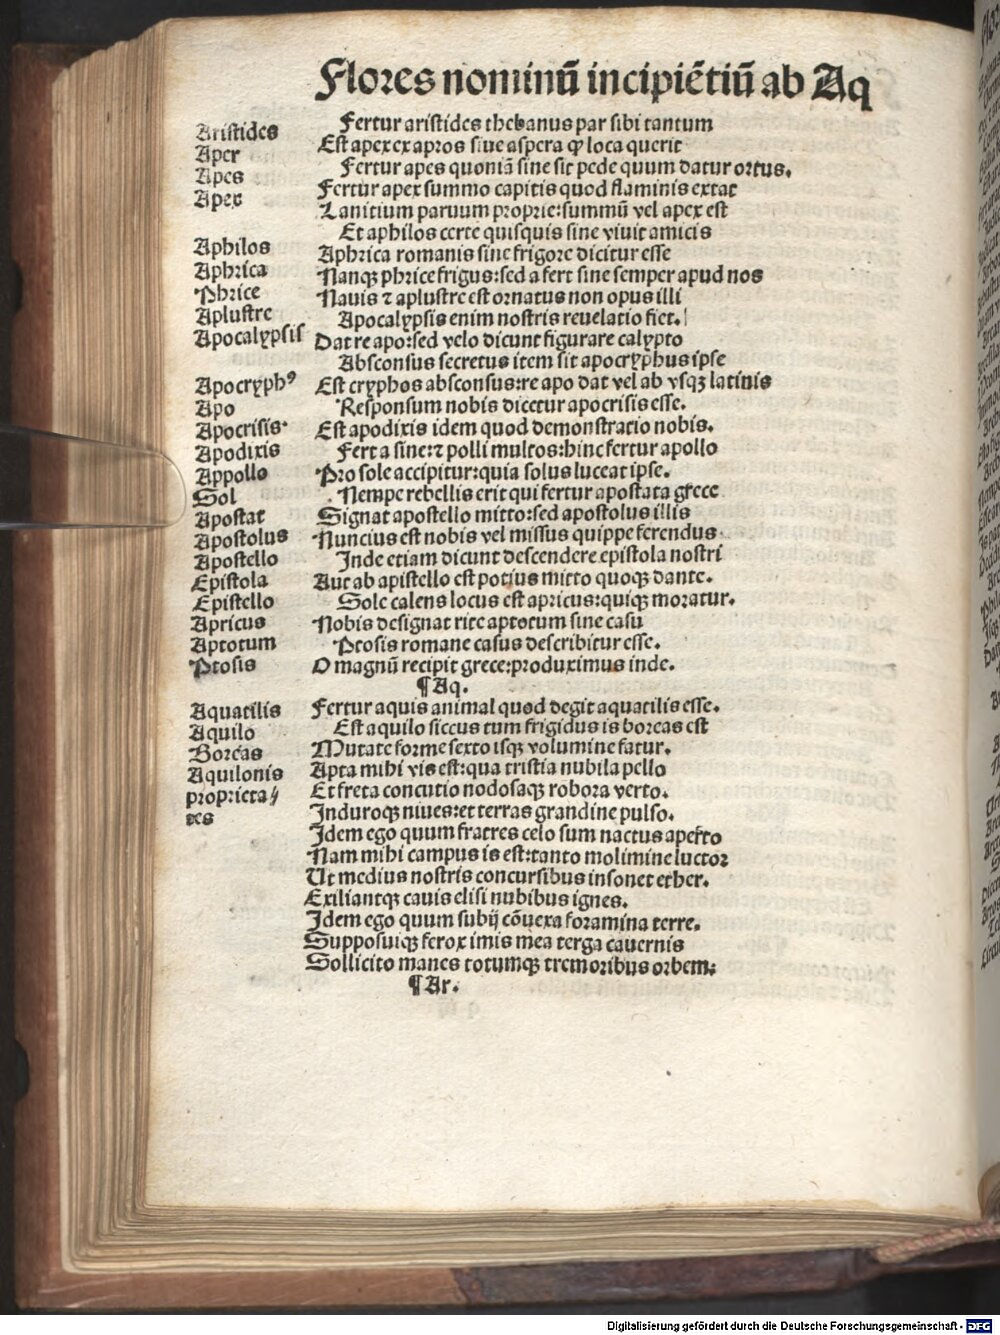 Flores nominū incipiētiū ab Aq
Aristides
Aper
Apes
Apex
Aphilos
Aphrica
Phrice
Aplustre
Apocalypsis
Apocryphꝰ
Apo
Apocrisis.
Apodixis
Appollo
Sol
Apostat
Apostolus
Apostello
Epistola
Epistello
Apricus
Aptotum
Ptosis
Aquatilis
Aquilo
Boreas
Aquilonis
proprieta//
tes
Fertur aristides thebanus par sibi tantum
Est apex ex apros siue aspera ꝙ loca querit
Fertur apes quoniā sine sit pede quum datur ortus.
Fertur apex summo capitis quod flaminis extat
Lanitium paruum proprie:summū vel apex est
Et aphilos certe quisquis sine viuit amicis
Aphrica romanis sine frigore dicitur esse
Nanqꝫ phrice frigus:sed a fert sine semper apud nos
Nauis ⁊ aplustre est ornatus non opus illi
Apocalypsis enim nostris reuelatio fiet.
Dat re apo:sed velo dicunt figurare calypto
Absconsus secretus item sit apocryphus ipse
Est cryphos absconsus:re apo dat vel ab vsqꝫ latinis
Responsum nobis dicetur apocrisis esse.
Est apodixis idem quod demonstratio nobis.
Fert a sine:⁊ polli multos:hinc fertur apollo
Pro sole accipitur:quia solus luceat ipse.
Nempe rebellis erit qui fertur apostata grece
Signat apostello mitto:sed apostolus illis
Nuncius est nobis vel missus quippe ferendus.
Inde etiam dicunt descendere epistola nostri
Aut ab apistello est potius mitto quoqꝫ dante.
Sole calens locus est apricus:quiqꝫ moratur.
Nobis designat rite aptotum sine casu
Ptosis romane casus describitur esse.
O magnū recipit grece:produximus inde.
¶Aq.
Fertur aquis animal quod degit aquatilis esse.
Est aquilo siccus tum frigidus is boreas est
Mutate forme sexto isqꝫ volumine fatur.
Apta mihi vis est:qua tristia nubila pello
Et freta concutio nodosaqꝫ robora verto.
Induroqꝫ niues:et terras grandine pulso.
Idem ego quum fratres celo sum nactus aperto
Nam mihi campus is est:tanto molimine luctor
Ut medius nostris concursibus insonet ether.
Exiliantqꝫ cauis elisi nubibus ignes.
Idem ego quum subij cōuexa foramina terre.
Supposuiqꝫ ferox imis mea terga cauernis
Sollicito manes totumqꝫ tremoribus orbem:
¶Ar.
Digitalisierung gefördert durch die Deutsche Forschungsgemeinschaft - DFG